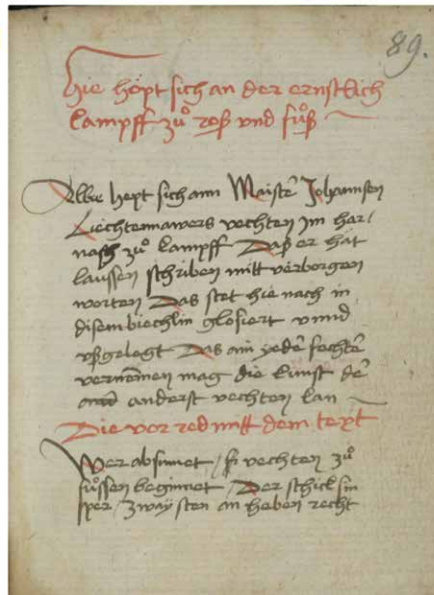 89.
Hie höpt sich an der ernstlich
kampff zuͦ roß vnd fuͦß
Allie hept sich ann Maiste͂ Johannsen
Liechtennawers vechten Jm har/
nasch zuͦ kampff Daß er hat
laussen schriben mitt verborgen
worten Das stet hie nach in
disem biechlin glosiert vnnd
vßgelegt Das ain yede͂ fechte͂
vernemen mag die kunst de͂
anderst vechten kan
Die vor red mitt dem text
Wer absinnet / fi vechten zuͦ
fuͦssen beginnet / Der schick sin
sper / zway sten an heben recht